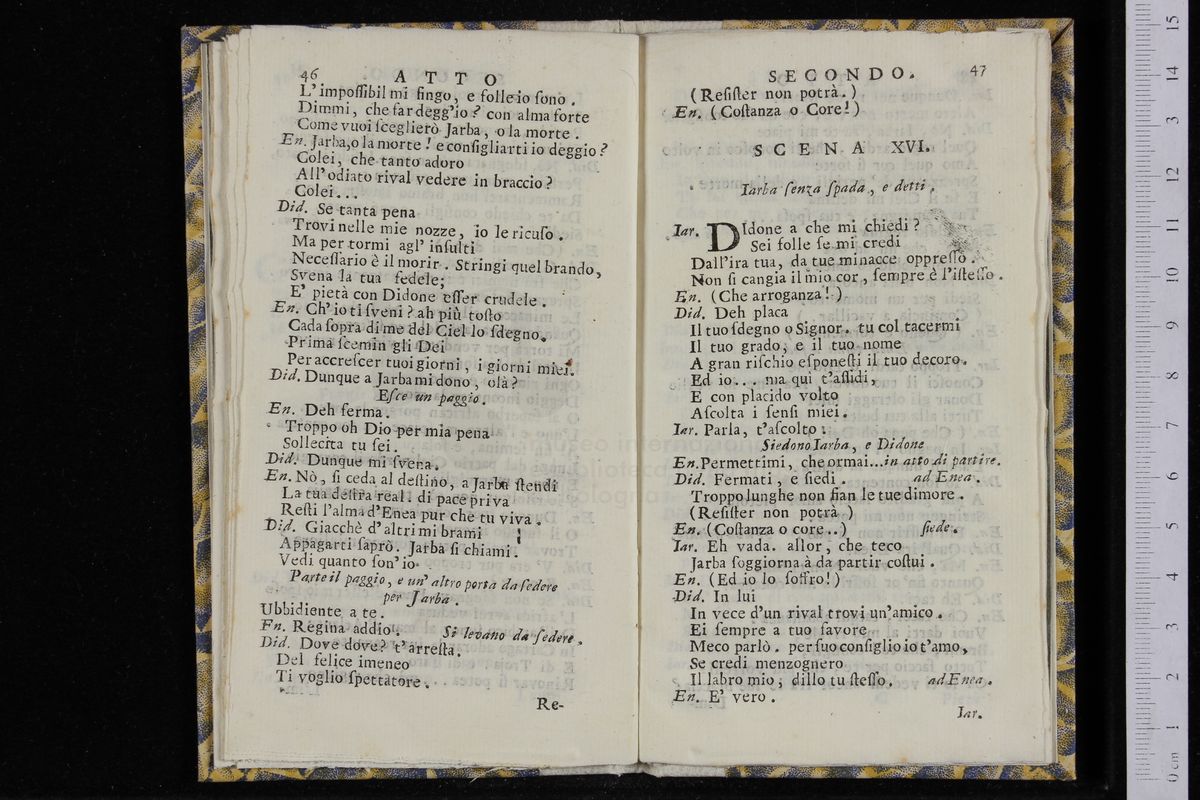 46 ATTO
L' impoſſibil mi fingo, e folle io ſono.
Dimmi, che far degg'io? con alma forte
Come vuoi ſceglierò Jarba, o la morte.
En. Jarba, o la morte! e conſigliarti io deggio?
Colei, che tanto adoro
All' odiato rival vedere in braccio?
Colei...
Did. Se tanta pena
Trovi nelle mie nozze, io le ricuſo.
Ma per tormi agl' inſulti
Neceſſario è il morir. Stringi quel brando,
Svena la tua fedele;
E' pietà con Didone eſſer crudele.
En. Ch' io ti ſveni? ah più toſto
Cada ſopra di me del Ciel lo ſdegno.
Prima ſcemin gli Dei
Per accreſcer tuoi giorni, i giorni miei.
Did. Dunque a Jarba mi dono, olà?
Eſce un paggio.
En. Deh ferma.
Troppo oh Dio per mia pena
Sollecita tu ſei.
Did. Dunque mi ſvena.
En. Nò, ſi ceda al deſtino, a Jarba ſtendi
La tua deſtra real. di pace priva
Reſti l'alma d'Enea pur che tu viva.
Did. Giacchè d'altri mi brami
Appagarti ſaprò. Jarba ſi chiami.
Vedi quanto ſon' io
Parte il paggio, e un' altro porta da ſedere
per Jarba.
Ubbidiente a te.
En. Regina addio. Si levano da ſedere.
Did. Dove dove? t'arreſta.
Del felice imeneo
Ti voglio ſpettatore.
Re-
SECONDO. 47
(Reſiſter non potrà.)
En. (Coſtanza o Core!)
SCENA XVI.
Iarba ſenza ſpada, e detti.
Iar. DIdone a che mi chiedi?
Sei folle ſe mi credi
Dall'ira tua, da tue minacce oppreſſo.
Non ſi cangia il mio cor, ſempre è l'iſteſſo.
En. (Che arroganza!)
Did. Deh placa
Il tuo ſdegno o Signor. tu col tacermi
Il tuo grado, e il tuo nome
A gran riſchio eſponeſti il tuo decoro.
Ed io... ma qui t'aſſidi,
E con placido volto
Aſcolta i ſenſi miei.
Iar. Parla, t'aſcolto.
Siedono Iarba, e Didone
En. Permettimi, che ormai... in atto di partire.
Did. Fermati, e ſiedi. ad Enea.
Troppo lunghe non ſian le tue dimore.
(Reſiſter non potrà)
En. (Coſtanza o core..) ſiede.
Iar. Eh vada. allor, che teco
Jarba ſoggiorna à da partir coſtui.
En. (Ed io lo ſoffro!)
Did. In lui
In vece d'un rival trovi un'amico.
Ei ſempre a tuo favore
Meco parlò. per ſuo conſiglio io t'amo,
Se credi menzognero
Il labro mio, dillo tu ſteſſo. ad Enea.
En. E' vero.
Iar.